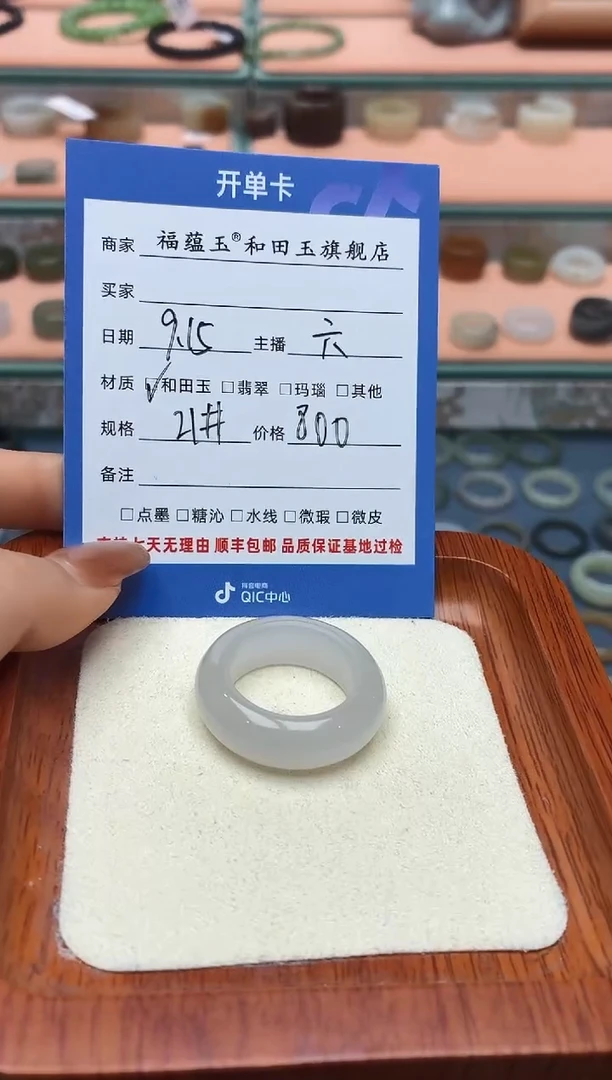 开单卡
商家 福蕴玉®和田玉旗舰店
买家
日期 9.15 主播 六
材质 ☑和田玉 □翡翠 □玛瑙 □其他
规格 21# 价格 800
备注
□点墨 □糖沁 □水线 □微瑕 □微皮
七天无理由 顺丰包邮 品质保证基地过检
抖音电商
QIC中心